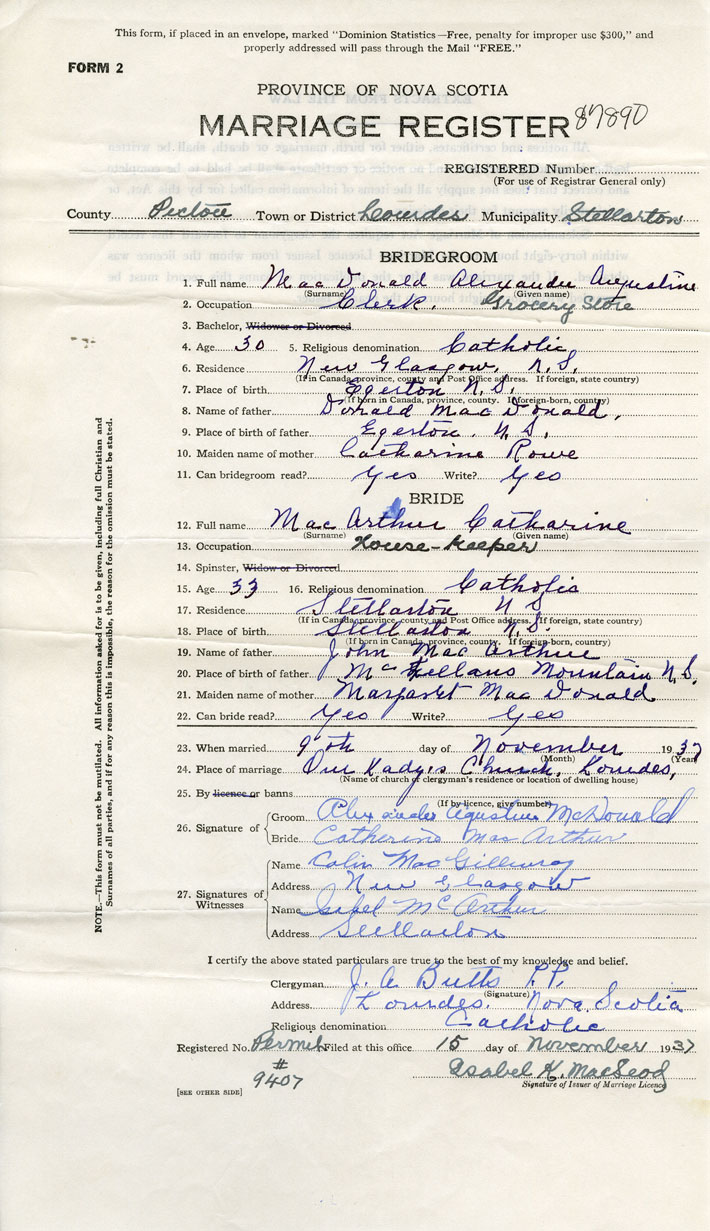 This form, if placed in an envelope, marked "Dominion Statistics—Free, penalty for improper use $300," and
properly addressed will pass through the Mail "FREE."
FORM 2
PROVINCE OF NOVA SCOTIA
MARRIAGE REGISTER 87890
REGISTERED Number
(For use of Registrar General only)
County Pictou Town or District Lourdes Municipality Stellarton
BRIDEGROOM
1. Full name Mac Donald Alexander Augustine
(Surname) (Given name)
2. Occupation Clerk. Grocery Store
3. Bachelor, Widower or Divorced
4. Age 30 5. Religious denomination Catholic
6. Residence New Glasgow, N.S.
(If in Canada, province, county and Post Office address. If foreign, state country)
7. Place of birth Egerton N.S.
(If born in Canada, province, county. If foreign-born, country)
8. Name of father Donald Mac Donald,
9. Place of birth of father Egerton, N.S.
10. Maiden name of mother Catharine Rowe
11. Can bridegroom read? Yes Write? Yes
BRIDE
12. Full name Mac Arthur Catharine
(Surname) (Given name)
13. Occupation House-Keeper
14. Spinster, Widow or Divorced
15. Age 33 16. Religious denomination Catholic
17. Residence Stellarton N S
(If in Canada, province, county and Post Office address. If foreign, state country)
18. Place of birth Stellarton N.S.
(If born in Canada, province, county. If foreign-born, country)
19. Name of father John Mac Arthur
20. Place of birth of father McLellans Mountain N.S.
21. Maiden name of mother Margaret Mac Donald
22. Can bride read? Yes Write? Yes
23. When married 9th day of November 1937
(Month) (Year)
24. Place of marriage Our Lady's Church, Lourdes,
(Name of church or clergyman's residence or location of dwelling house)
25. By licence or banns
(If by licence, give number)
26. Signature of
Groom Alexander Agustius McDonald
Bride Catherine Mac Arthur
27. Signatures of Witnesses
Name Colin Mac Gillivray
Address New Glasgow
Name Isabel McArthur
Address Stellarton
I certify the above stated particulars are true to the best of my knowledge and belief.
Clergyman J. A. Butts P.P.
(Signature)
Address Lourdes. Nova Scotia
Religious denomination Catholic
Registered No. Permit Filed at this office 15 day of November 1937
# 9407
Isabel H. MacLeod
Signature of Issuer of Marriage Licence
[SEE OTHER SIDE]
NOTE.—This form must not be mutilated. All information asked for is to be given, including full Christian and
Surnames of all parties, and if for any reason this is impossible, the reason for the omission must be stated.